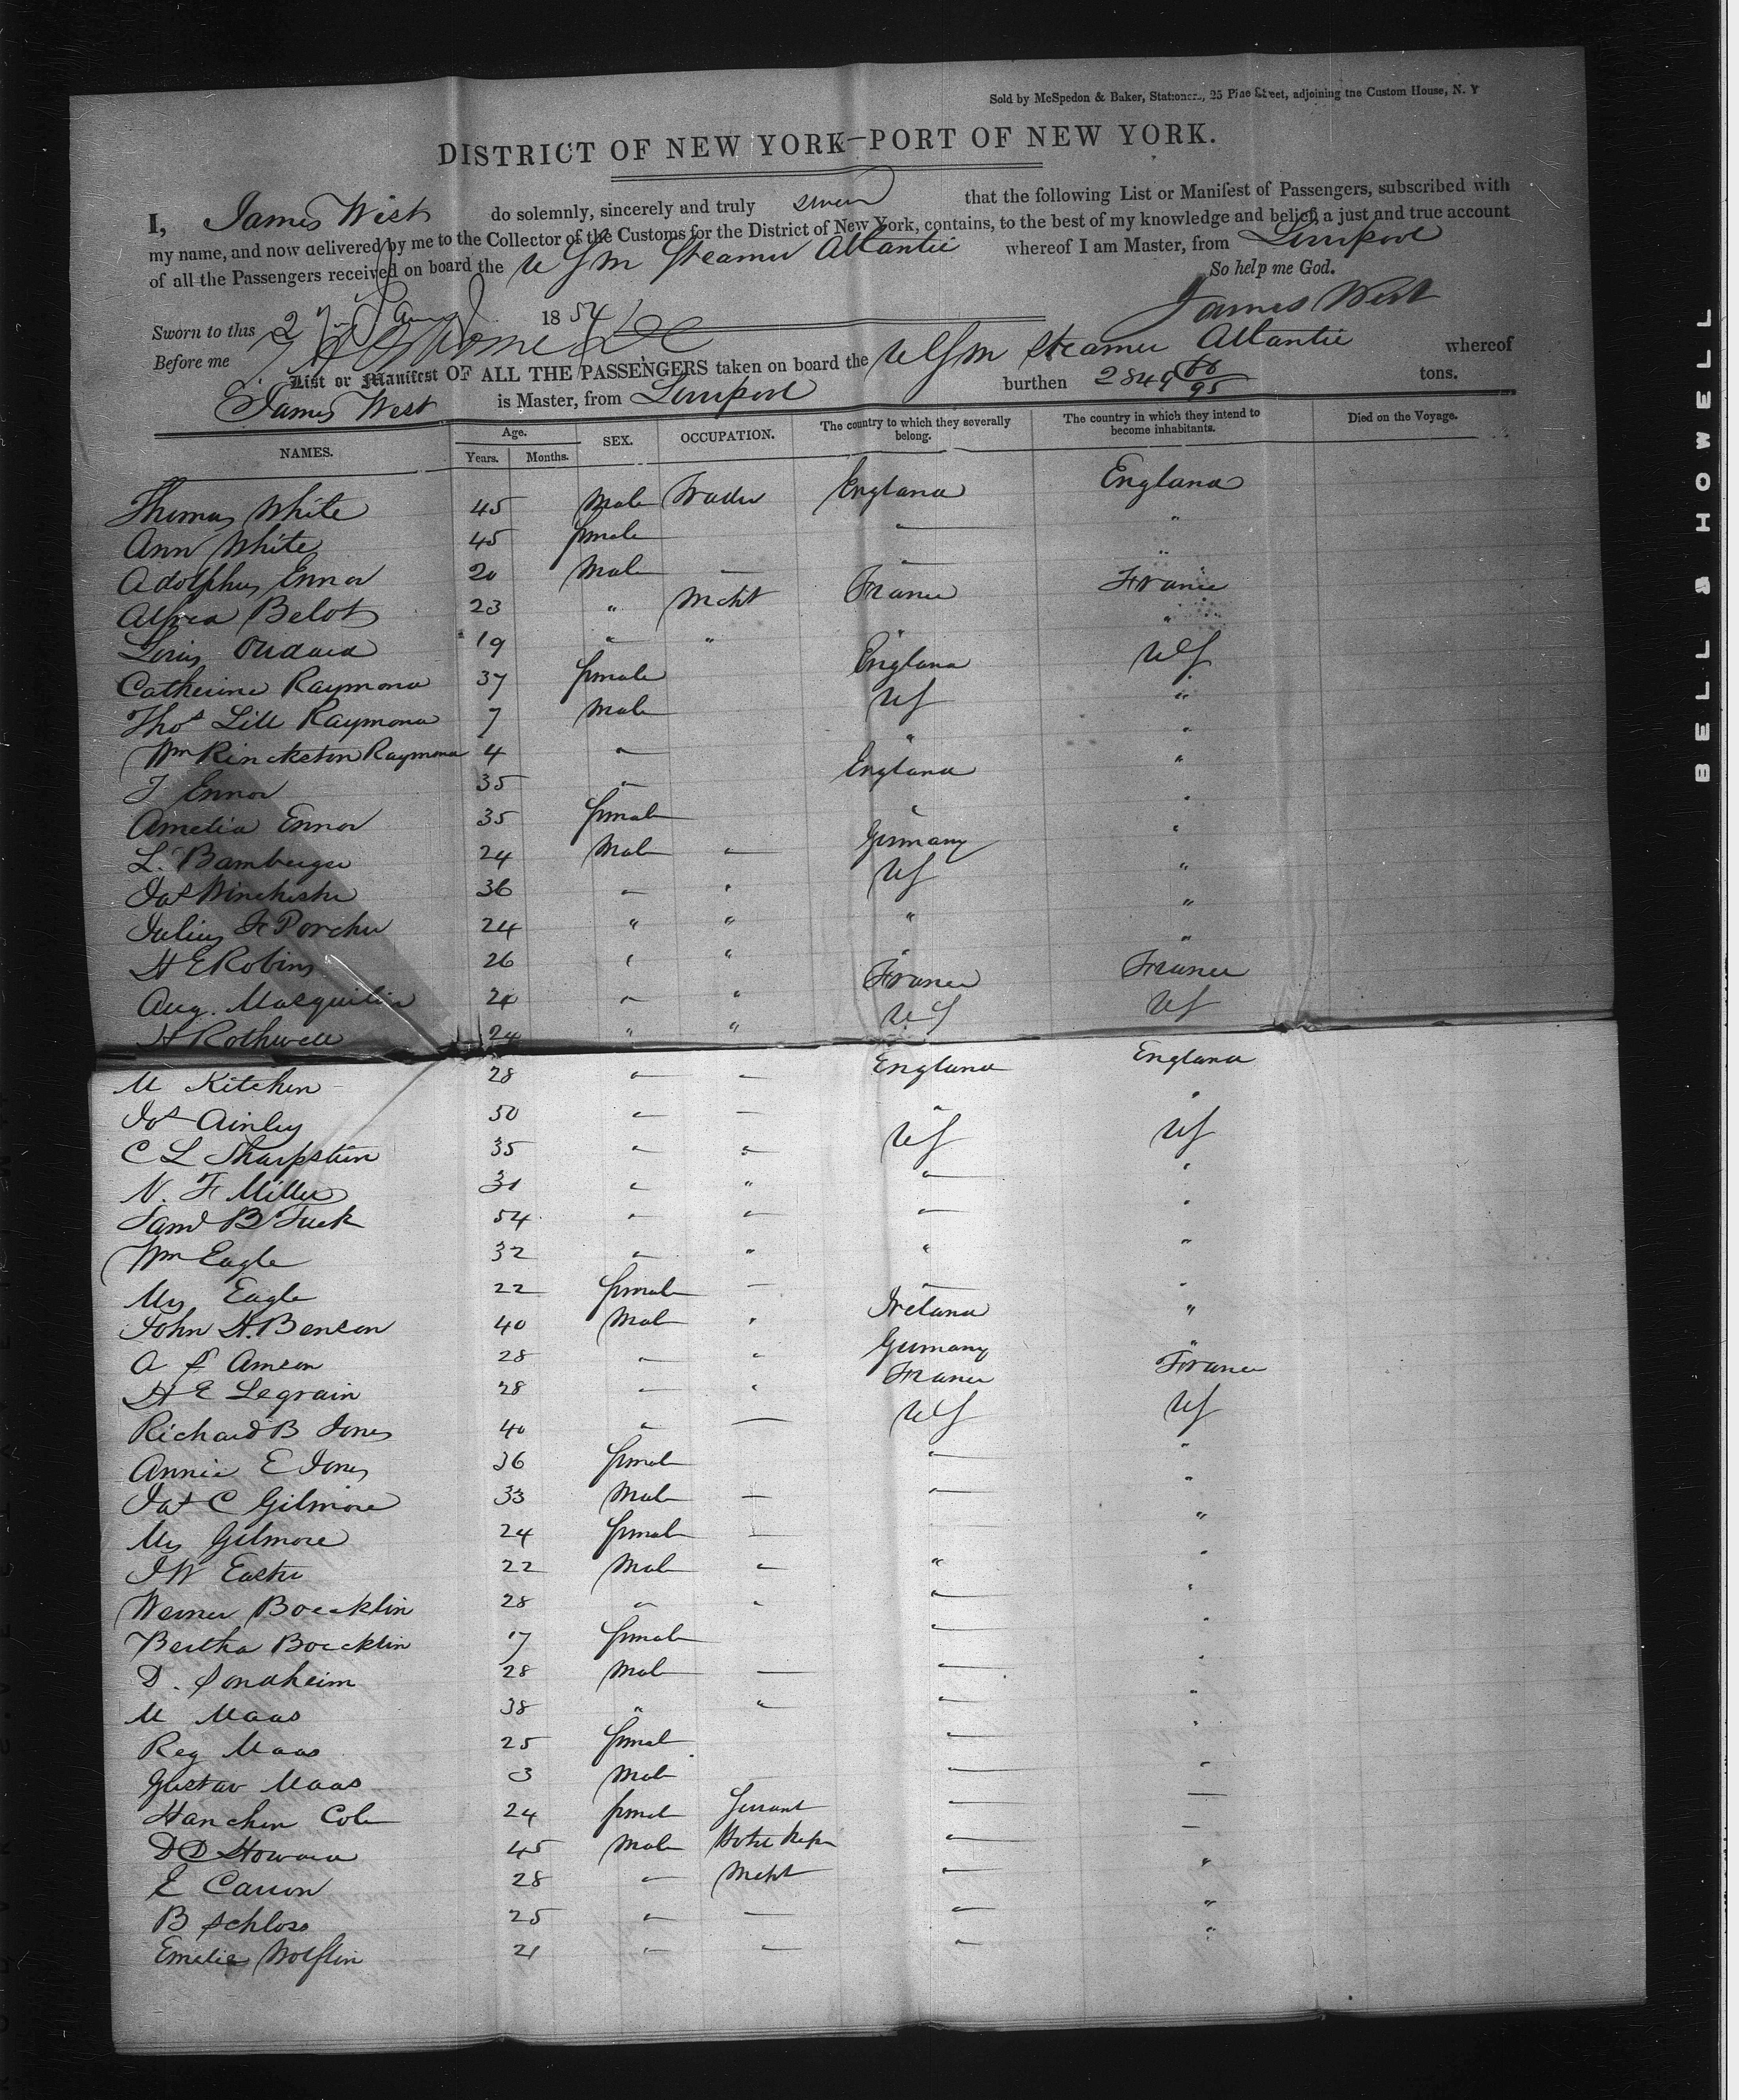 Sold by McSpedon & Baker, Stationers, 25 Pine Street, adjoining the Custom House, N. Y
DISTRICT OF NEW YORK—PORT OF NEW YORK.
I, James West do solemnly, sincerely and truly swear that the following List or Manifest of Passengers, subscribed with
my name, and now delivered by me to the Collector of the Customs for the District of New York, contains, to the best of my knowledge and belief, a just and true account
of all the Passengers received on board the U S M Steamer Atlantic whereof I am Master, from Liverpool
So help me God.
Sworn to this 2 Jany 1854 James West
Before me
List or Manifest OF ALL THE PASSENGERS taken on board the U S M Steamer Atlantic whereof
James West is Master, from Liverpool burthen 2849 66/95 tons.
NAMES. Age. Years. Months. SEX. OCCUPATION. The country to which they severally belong. The country in which they intend to become inhabitants. Died on the Voyage.
Thomas White 45 Male Trader England England
Ann White 45 female — "
Adolphus Ennor 20 Male — — "
Alfred Belot 23 " Mcht France France
Louis Oudard 19 " " " "
Catherine Raymond 37 female England US
Thos Lill Raymond 7 Male US "
Wm Rinckston Raymond 4 " " "
F Ennor 35 " England "
Amelia Ennor 35 female " "
L. Bamberger 24 Male " Germany "
Jas Winchester 36 " " US "
Julius F Porcher 24 " " " "
H E Robins 26 " " " "
Aug. Masquilin 24 " " France France
H Rothwell 24 " " US US
M Kitchen 28 " — England England
Jos Ainley 50 " — " "
C L Sharpstein 35 " " US US
N. F Miller 31 " " " "
Saml B Tuck 54 " " " "
Wm Eagle 32 " " " "
Mrs Eagle 22 female — — "
John H. Benson 40 Male " Ireland "
A S Amson 28 " " Germany "
H E Legrain 28 " " France France
Richard B Jones 40 " — US US
Annie E Jones 36 female " "
Jas C Gilmore 33 Male — " "
Mrs Gilmore 24 female — "
J W Easter 22 Male " " "
Werner Boecklin 28 " " " "
Bertha Boecklin 17 female " "
D. Sondheim 28 Male — " "
M Maas 38 " " " "
Reg Maas 25 female " "
Gustav Maas 3 Male " "
Hanchen Coln 24 female Servant " —
D D Howard 45 Male Hotel Keper " —
E Carron 28 " Mcht " "
B Schloss 25 " — " "
Emelie Wolflin 21 " — " "
BELL & HOWELL